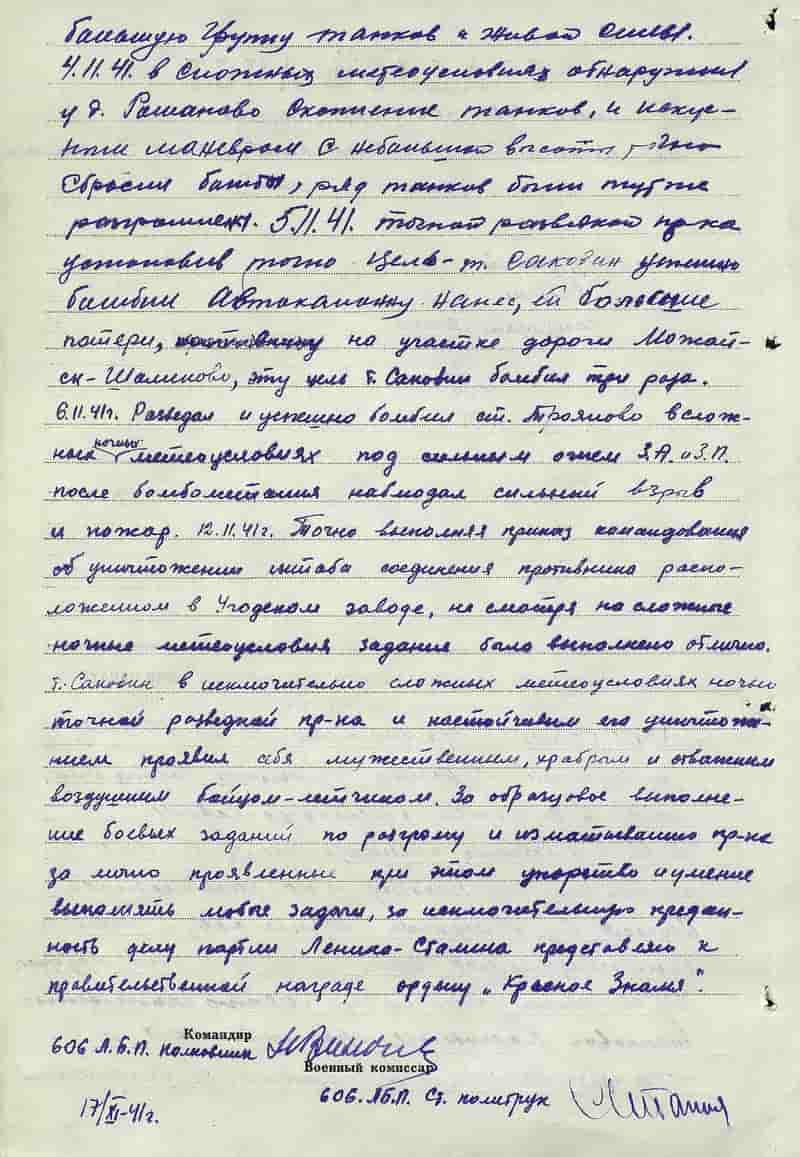 большую группу танков и живой силы.
4.11.41. в сложных метеоусловиях обнаружил
у д. Романово скопление танков, и искус-
ным маневром с небольшой высоты точно
сбросил бомбы, ряд танков были тут же
разгромлены. 5.11.41. точной разведкой пр-ка
установив точно цель - т. Саковин успешно
бомбил автоколонну нанес, ей большие
потери, на участке дороги Можай-
ск - Шаликово, эту цель т. Саковин бомбил три раза.
6.11.41г. Разведал и успешно бомбил ст. Трояново в слож-
ных ночных метеоусловиях под сильным огнем З.А. и З.П.
после бомбометания наблюдал сильный взрыв
и пожар. 12.11.41г. Точно выполняя приказ командования
об уничтожении штаба соединения противника распо-
ложенном в Угодском заводе, не смотря на сложные
ночные метеоусловия задания было выполнено отлично.
т. Саковин в исключительно сложных метеоусловиях ночью
точной разведкой пр-ка и настойчивым его уничтоже-
нием проявил себя мужественным, храбрым и отважным
воздушным бойцом-летчиком. За образцовое выполне-
ние боевых заданий по разгрому и изматыванию пр-ка
за лично проявленные при этом упорство и умение
выполнять любые задачи, за исключительную предан-
ность делу партии Ленина-Сталина представляю к
правительственной награде ордену „Красное Знамя".
Командир
606 Л.Б.П. полковник
Военный комиссар
606. ЛБ.П. Ст. политрук
17/XI-41г.